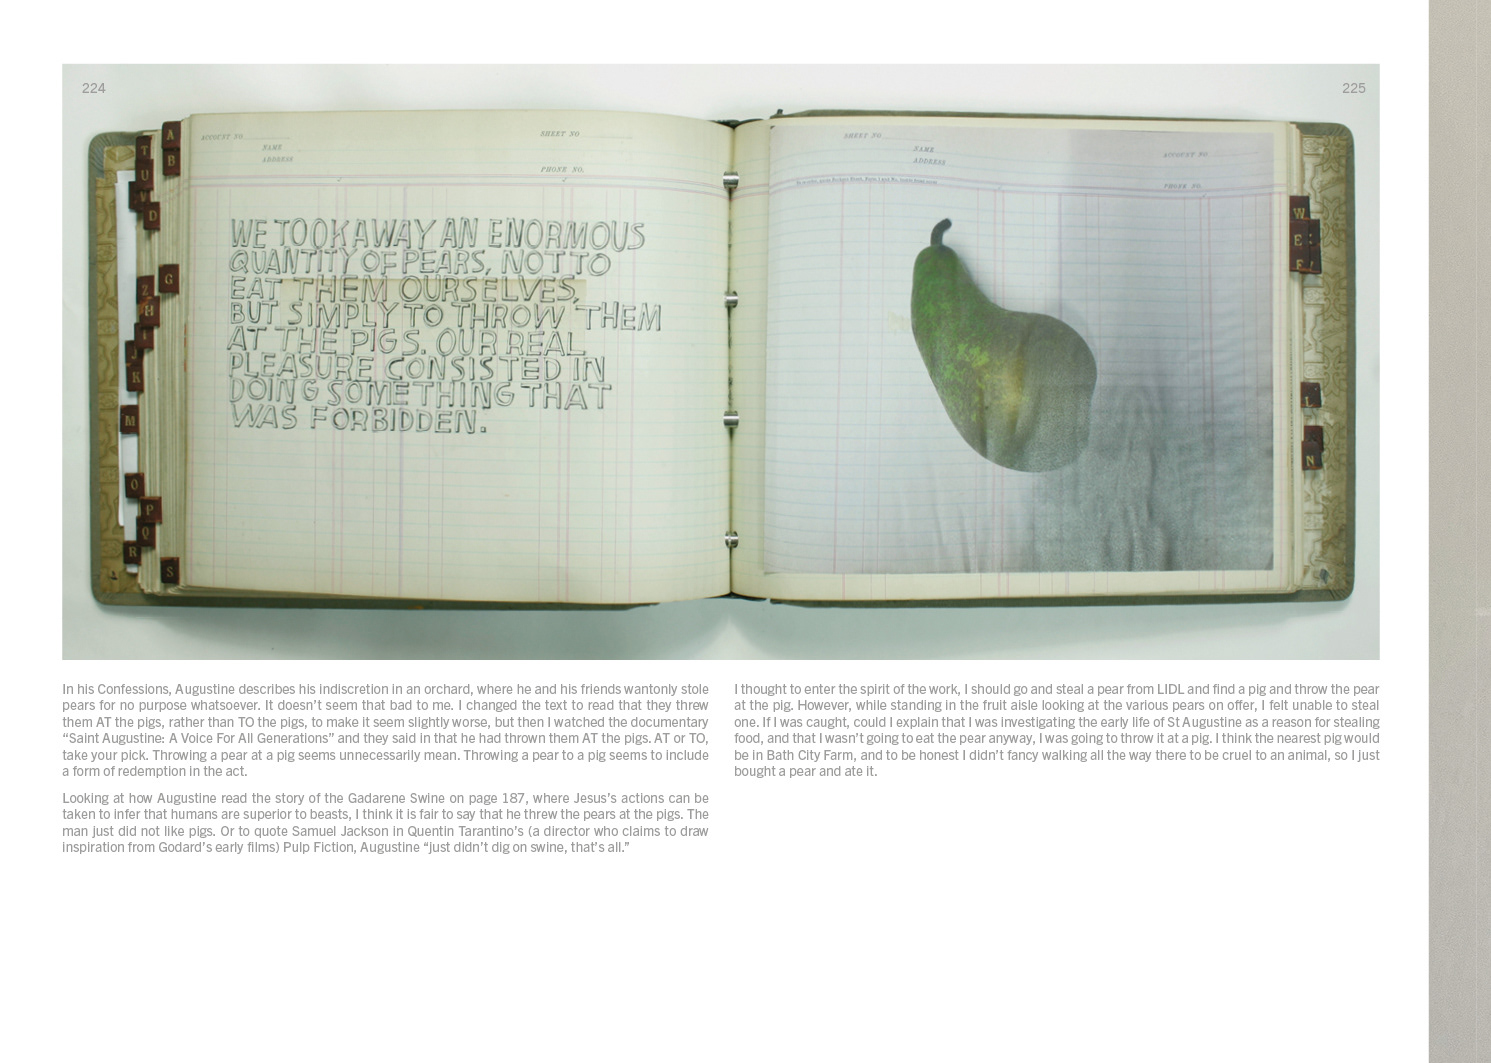 224
225
A
T
B
U
V
D
G
Z
H
I
J
K
M
O
P
Q
R
S
ACCOUNT NO
SHEET NO
NAME
ADDRESS
PHONE NO.
WE TOOK AWAY AN ENORMOUS
QUANTITY OF PEARS, NOT TO
EAT THEM OURSELVES,
BUT SIMPLY TO THROW THEM
AT THE PIGS. OUR REAL
PLEASURE CONSISTED IN
DOING SOMETHING THAT
WAS FORBIDDEN.
SHEET NO
NAME
ADDRESS
ACCOUNT NO
PHONE NO.
W
E
F
L
N
In his Confessions, Augustine describes his indiscretion in an orchard, where he and his friends wantonly stole
pears for no purpose whatsoever. It doesn't seem that bad to me. I changed the text to read that they threw
them AT the pigs, rather than TO the pigs, to make it seem slightly worse, but then I watched the documentary
“Saint Augustine: A Voice For All Generations” and they said in that he had thrown them AT the pigs. AT or TO,
take your pick. Throwing a pear at a pig seems unnecessarily mean. Throwing a pear to a pig seems to include
a form of redemption in the act.
Looking at how Augustine read the story of the Gadarene Swine on page 187, where Jesus's actions can be
taken to infer that humans are superior to beasts, I think it is fair to say that he threw the pears at the pigs. The
man just did not like pigs. Or to quote Samuel Jackson in Quentin Tarantino's (a director who claims to draw
inspiration from Godard's early films) Pulp Fiction, Augustine “just didn't dig on swine, that's all.”
I thought to enter the spirit of the work, I should go and steal a pear from LIDL and find a pig and throw the pear
at the pig. However, while standing in the fruit aisle looking at the various pears on offer, I felt unable to steal
one. If I was caught, could I explain that I was investigating the early life of St Augustine as a reason for stealing
food, and that I wasn't going to eat the pear anyway, I was going to throw it at a pig. I think the nearest pig would
be in Bath City Farm, and to be honest I didn't fancy walking all the way there to be cruel to an animal, so I just
bought a pear and ate it.